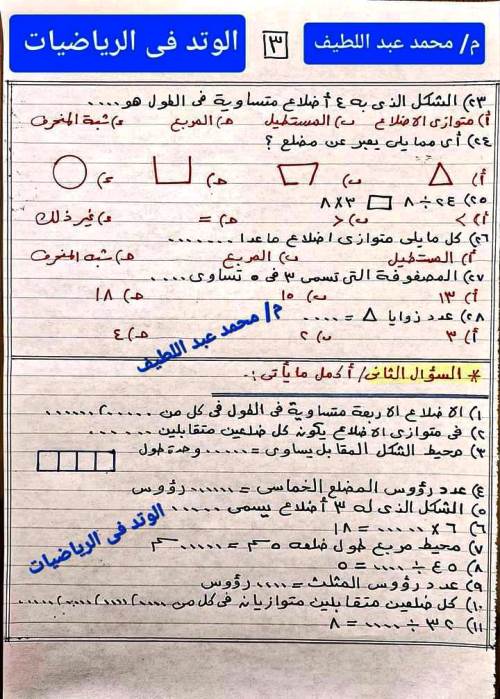 م/ محمد عبد اللطيف ٣ الوتد فى الرياضيات
٢٣) الشكل الذى به ٤ أضلاع متساوية فى الطول هو....
أ) متوازى الاضلاع ب) المستطيل هـ) المربع د) شبة المنحرف
٢٤) أى مما يلى يعبر عن مضلع ؟
أ) ب) هـ) د)
٢٥) ٢٤ ÷ ٨ □ ٣ × ٨
أ) > ب) < هـ) = د) غير ذلك
٢٦) كل ما يلى متوازى اضلاع ماعدا .......
أ) المستطيل ب) المربع هـ) شبه المنحرف
٢٧) المصفوفة التى تسمى ٣ فى ٥ تساوى ....
أ) ١٣ ب) ١٥ هـ) ١٨
٢٨) عدد زوايا △ = ....
أ) ٣ ب) ٢ هـ) ٤
م/ محمد عبد اللطيف
* السؤال الثانى / أكمل ما يأتى :-
١) الاضلاع الاربعة متساوية فى الطول فى كل من ......،......
٢) فى متوازى الاضلاع يكون كل ضلعين متقابلين ......
٣) محيط الشكل المقابل يساوى = ...... وحدة طول
٤) عدد رؤوس المضلع الخماسى = ...... رؤوس
٥) الشكل الذى له ٣ أضلاع يسمى .....
٦) ٦ × ...... = ١٨
٧) محيط مربع طول ضلعه ٥ سم = ..... سم
٨) ٤٥ ÷ ..... = ٥
٩) عدد رؤوس المثلث = .... رؤوس
١٠) كل ضلعين متقابلين متوازيان فى كل من ....،....،....،....
١١) ٣٢ ÷ .... = ٨
الوتد فى الرياضيات